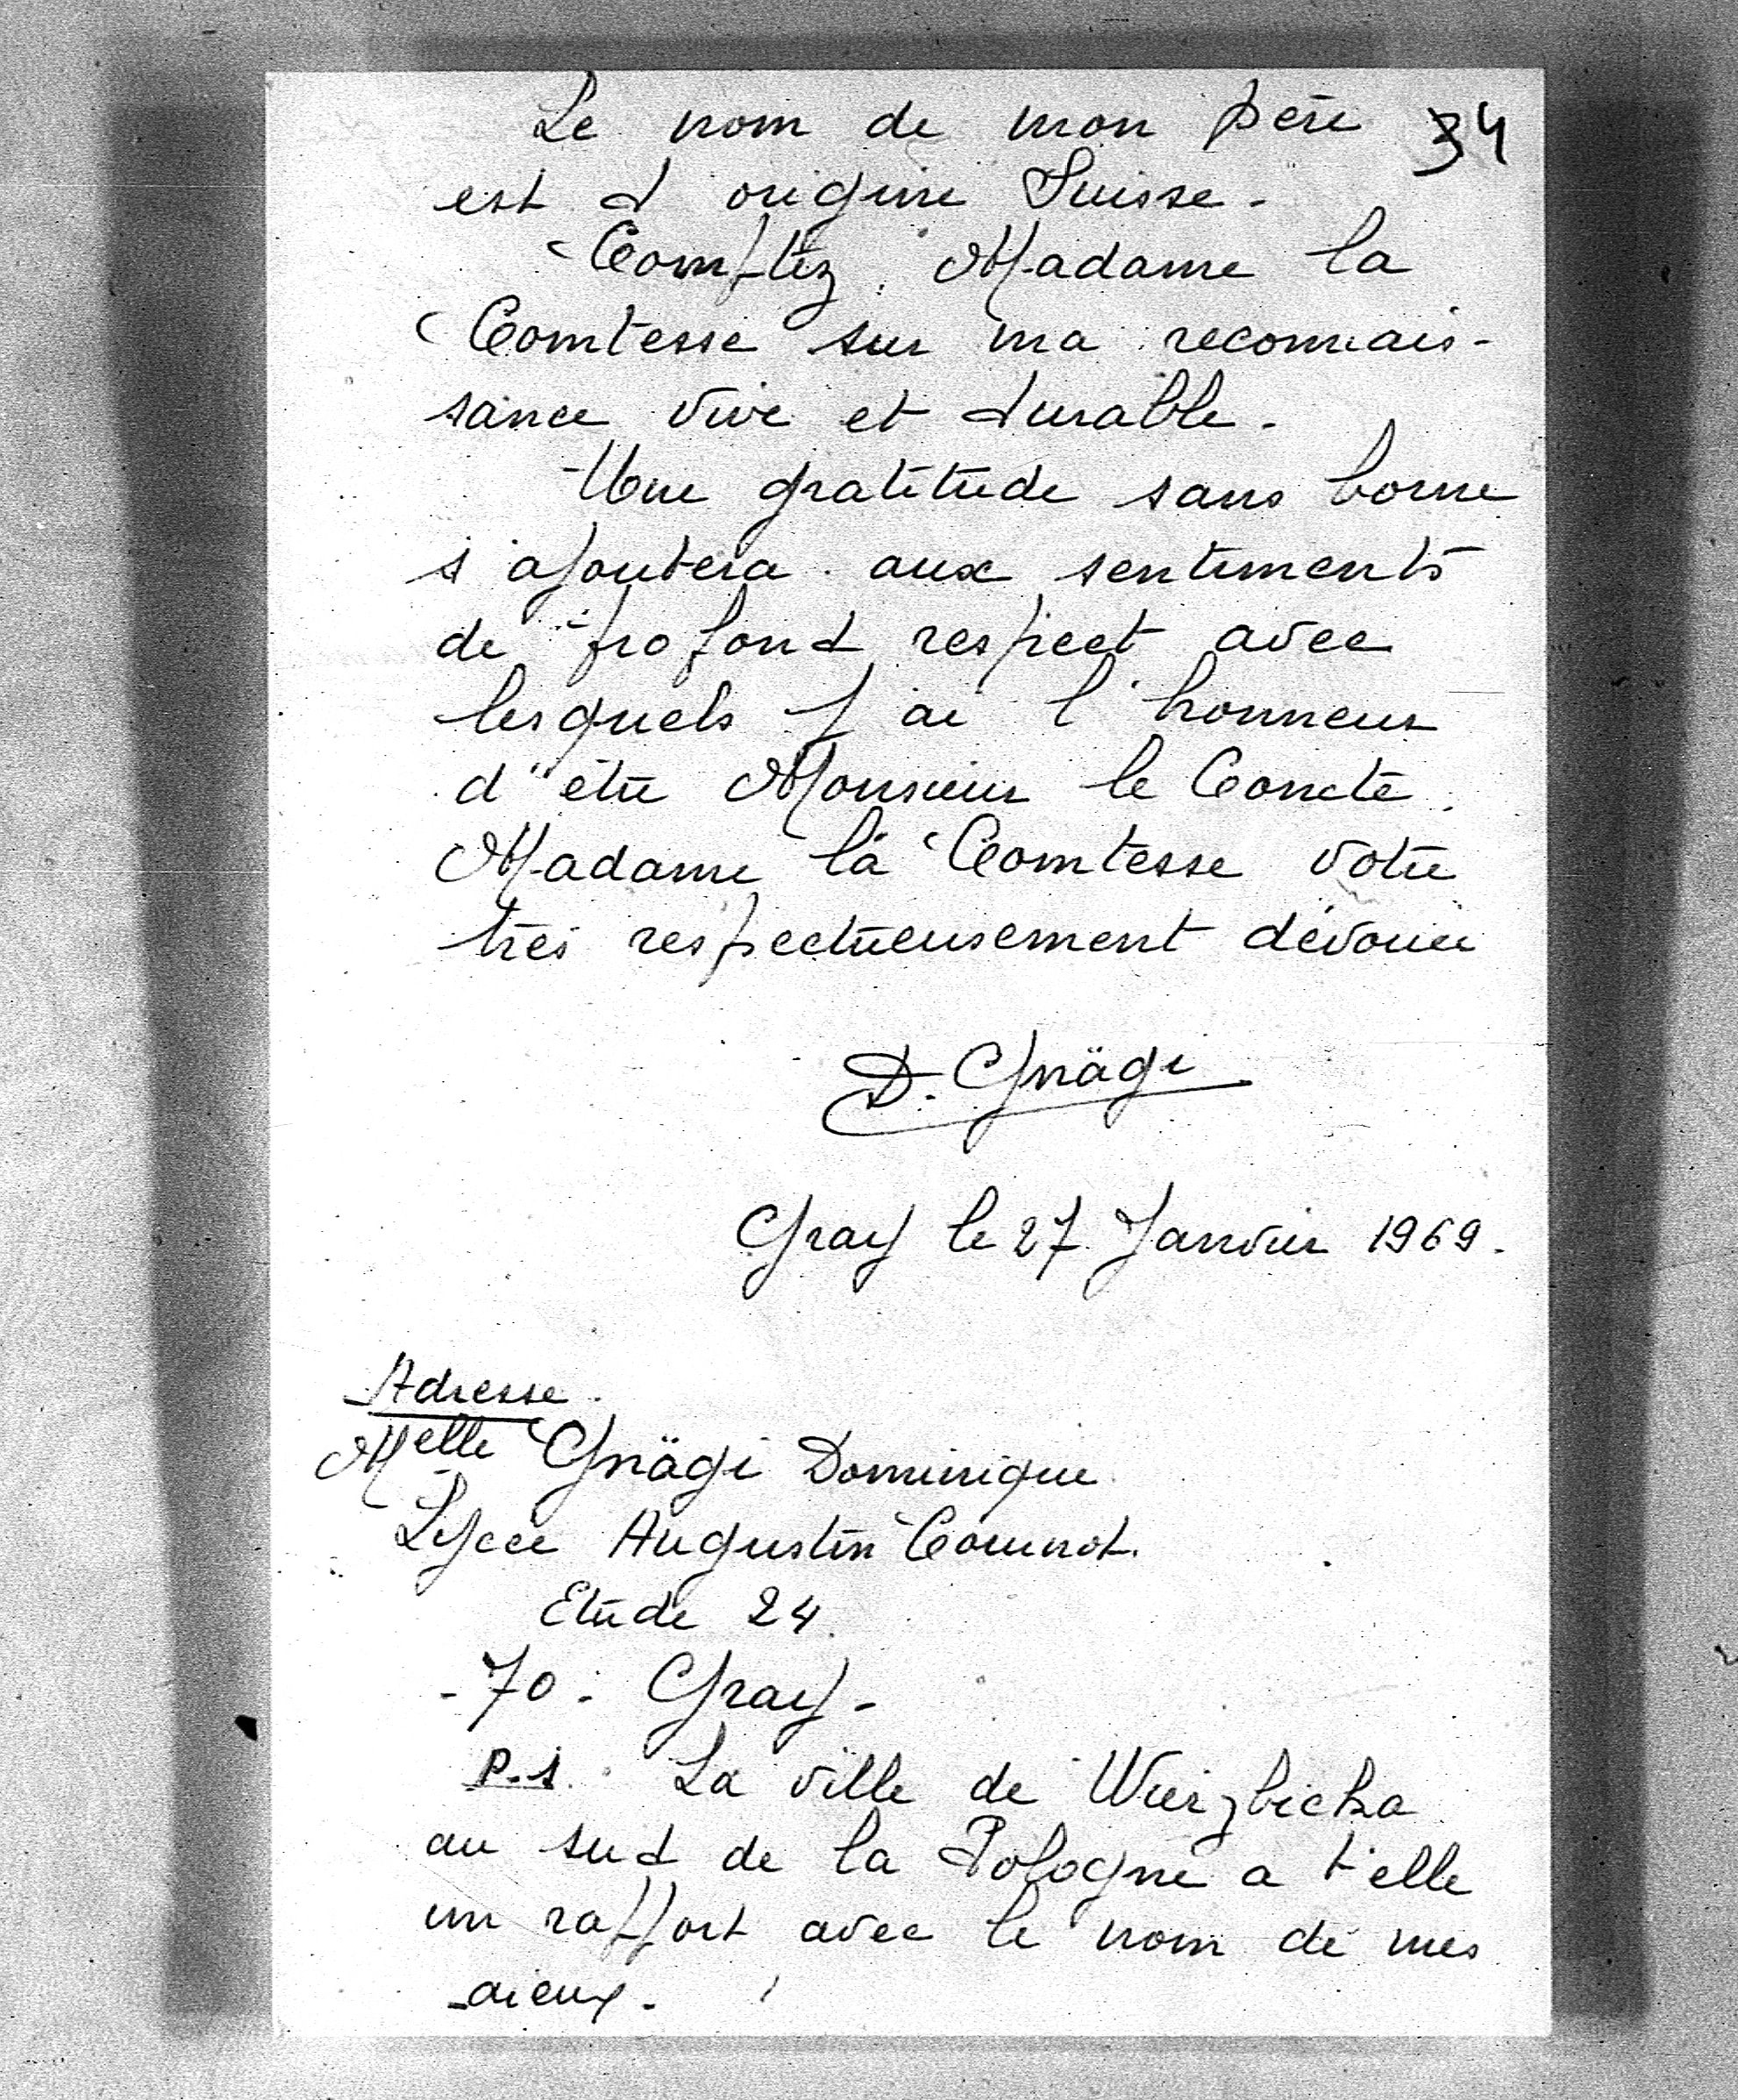 Le nom de mon père 34
est d'origine Suisse.
Comptez, Madame la
Comtesse sur ma reconnais-
sance vive et durable.
Une gratitude sans borne
s'ajoutera aux sentiments
de profond respect avec
lesquels j'ai l'honneur
d'être Monsieur le Comte
Madame la Comtesse votre
très respectueusement dévouée
D. Gnägi
Gray le 27 Janvier 1969.
Adresse.
Melle Gnägi Dominique
Lycée Augustin Cournot.
Etude 24.
-70- Gray-
P.S. La ville de Wierzbicka
au sud de la Pologne a t'elle
un rapport avec le nom de mes
aïeux.